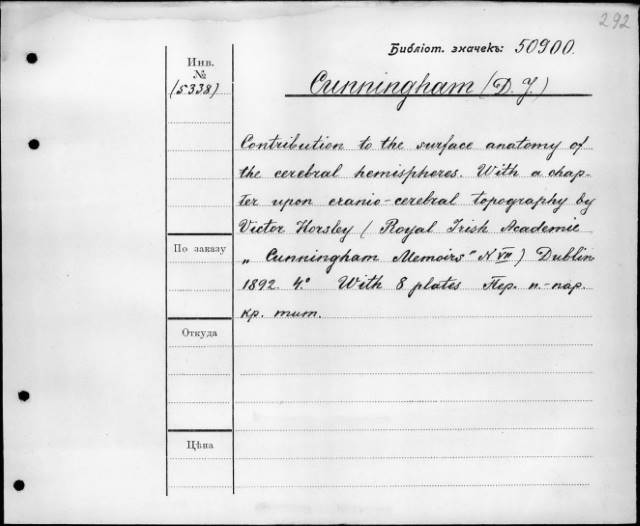 292
Библіот. значекъ: 50900.
Инв.
№
(5338)
Cunningham (D. J.)
Contribution to the surface anatomy of
the cerebral hemispheres. With a chap-
ter upon cranio-cerebral topography by
Victor Horsley (Royal Irish Academie
„Cunningham Memoirs" N VII) Dublin
1892. 4.° With 8 plates Пер. п.-пар.
кр. тит.
По заказу
Откуда
Цѣна